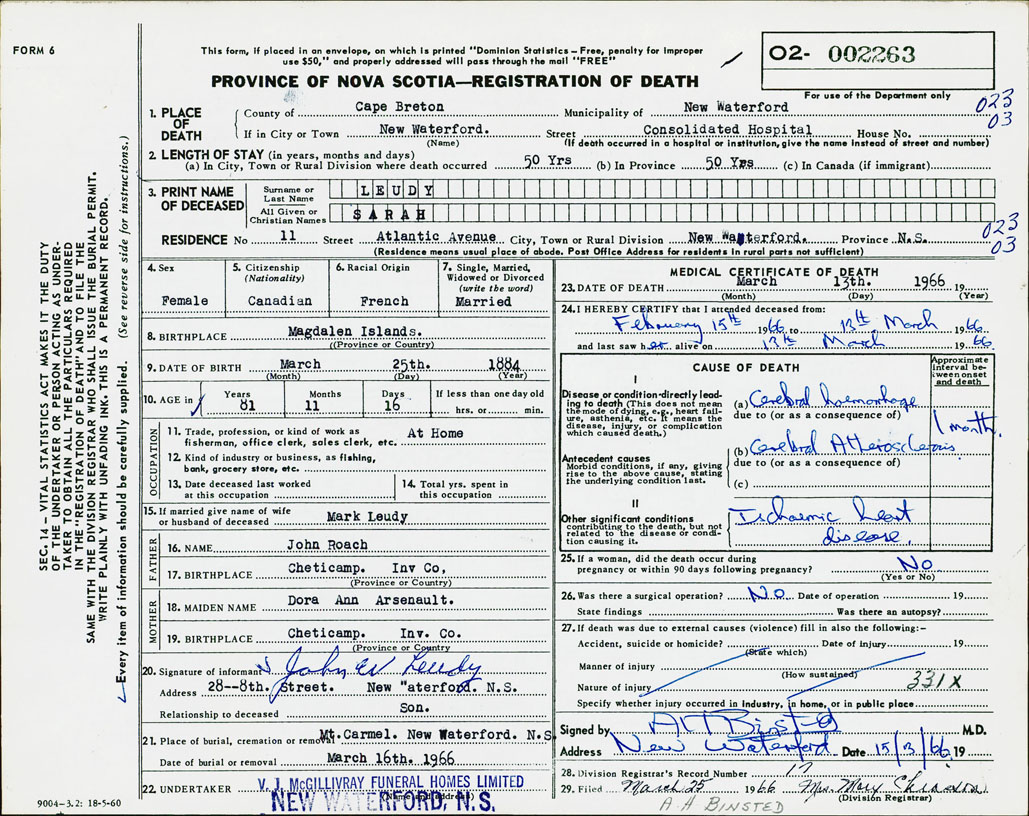 FORM 6
This form, if placed in an envelope, on which is printed "Dominion Statistics – Free, penalty for improper
use $50," and properly addressed will pass through the mail "FREE"
PROVINCE OF NOVA SCOTIA—REGISTRATION OF DEATH
O2- 002263
For use of the Department only
023
03
1. PLACE OF DEATH
County of Cape Breton Municipality of New Waterford
If in City or Town New Waterford. Street Consolidated Hospital House No.
(Name) (If death occurred in a hospital or institution, give the name instead of street and number)
2. LENGTH OF STAY (in years, months and days)
(a) In City, Town or Rural Division where death occurred 50 Yrs (b) In Province 50 Yrs (c) In Canada (if immigrant)
3. PRINT NAME OF DECEASED
Surname or Last Name LEUDY
All Given or Christian Names SARAH
RESIDENCE No 11 Street Atlantic Avenue City, Town or Rural Division New Waterford. Province N.S.
023
03
(Residence means usual place of abode. Post Office Address for residents in rural parts not sufficient)
4. Sex
Female
5. Citizenship
(Nationality)
Canadian
6. Racial Origin
French
7. Single, Married,
Widowed or Divorced
(write the word)
Married
8. BIRTHPLACE Magdalen Islands.
(Province or Country)
9. DATE OF BIRTH March 25th. 1884
(Month) (Day) (Year)
10. AGE in Years Months Days If less than one day old
81 11 16 hrs. or min.
OCCUPATION
11. Trade, profession, or kind of work as
fisherman, office clerk, sales clerk, etc. At Home
12. Kind of industry or business, as fishing,
bank, grocery store, etc.
13. Date deceased last worked
at this occupation
14. Total yrs. spent in
this occupation
15. If married give name of wife
or husband of deceased Mark Leudy
FATHER
16. NAME John Roach
17. BIRTHPLACE Cheticamp. Inv Co,
(Province or Country)
MOTHER
18. MAIDEN NAME Dora Ann Arsenault.
19. BIRTHPLACE Cheticamp. Inv. Co.
(Province or Country)
20. Signature of informant John W Leudy
Address 28--8th. Street. New "aterford. N.S.
Relationship to deceased Son.
21. Place of burial, cremation or removal Mt.Carmel. New Waterford. N.S
Date of burial or removal March 16th. 1966
22. UNDERTAKER V. J. McGILLIVRAY FUNERAL HOMES LIMITED
(Name and address)
NEW WATERFORD, N.S.
MEDICAL CERTIFICATE OF DEATH
23. DATE OF DEATH March 13th. 1966 19
(Month) (Day) (Year)
24. I HEREBY CERTIFY that I attended deceased from:
February 15th 1966 to 13th March 1966
and last saw her alive on 13th March 1966
CAUSE OF DEATH
Approximate
interval be-
tween onset
and death
I
Disease or condition directly lead-
ing to death (This does not mean
the mode of dying, e.g., heart fail-
ure, asthenia, etc. It means the
disease, injury, or complication
which caused death.)
(a) Cerebral haemorrhage
due to (or as a consequence of)
1 month.
(b) Cerebral Atherosclerosis
due to (or as a consequence of)
(c)
Antecedent causes
Morbid conditions, if any, giving
rise to the above cause, stating
the underlying condition last.
II
Other significant conditions
contributing to the death, but not
related to the disease or condi-
tion causing it.
Ischaemic heart
disease.
25. If a woman, did the death occur during
pregnancy or within 90 days following pregnancy? No
(Yes or No)
26. Was there a surgical operation? No. Date of operation 19
State findings Was there an autopsy?
27. If death was due to external causes (violence) fill in also the following:–
Accident, suicide or homicide? Date of injury 19
(State which)
Manner of injury
(How sustained)
Nature of injury 331X
Specify whether injury occurred in industry, in home, or in public place
Signed by AH Binsted M.D.
Address New Waterford Date 15/3/66 19
28. Division Registrar's Record Number 17
29. Filed March 25 1966 Mrs. Mary
(Division Registrar)
A A BINSTED
SEC. 14 – VITAL STATISTICS ACT MAKES IT THE DUTY
OF THE UNDERTAKER OR PERSON ACTING AS UNDER-
TAKER TO OBTAIN ALL THE PARTICULARS REQUIRED
IN THE "REGISTRATION OF DEATH" AND TO FILE THE
SAME WITH THE DIVISION REGISTRAR WHO SHALL ISSUE THE BURIAL PERMIT.
WRITE PLAINLY WITH UNFADING INK. THIS IS A PERMANENT RECORD.
Every item of information should be carefully supplied. (See reverse side for instructions.)
9004-3.2: 18-5-60